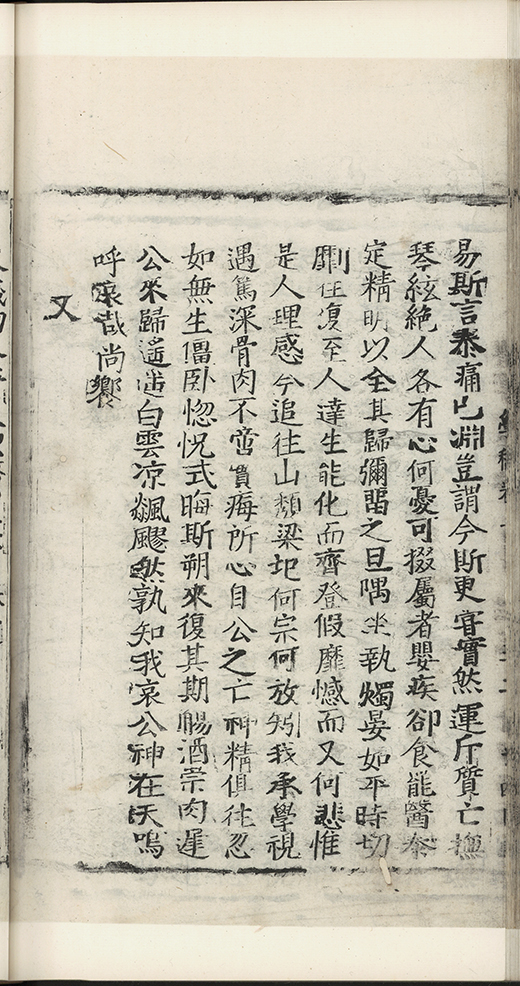 易斯言忝痛已淵豈謂今斯更宿實然運斤質亡撫
琴絃絶人各有心何憂可掇屬者嬰疾卻食罷醫泰
定精明以全其歸彌留之旦隅坐執燭晏如平時切
劘往復至人達生能化而齊登假靡憾而又何悲惟
是人理感今追往山頹梁圮何宗何放矧我承學視
遇篤深骨肉不啻賞誨所心自公之亡神精俱往忽
如無生僵卧惚怳式晦斯朔來復其期觴酒崇肉遲
公來歸遥遥白雲凉飆飂然孰知我哀公神在天嗚
呼哀哉尚饗
又